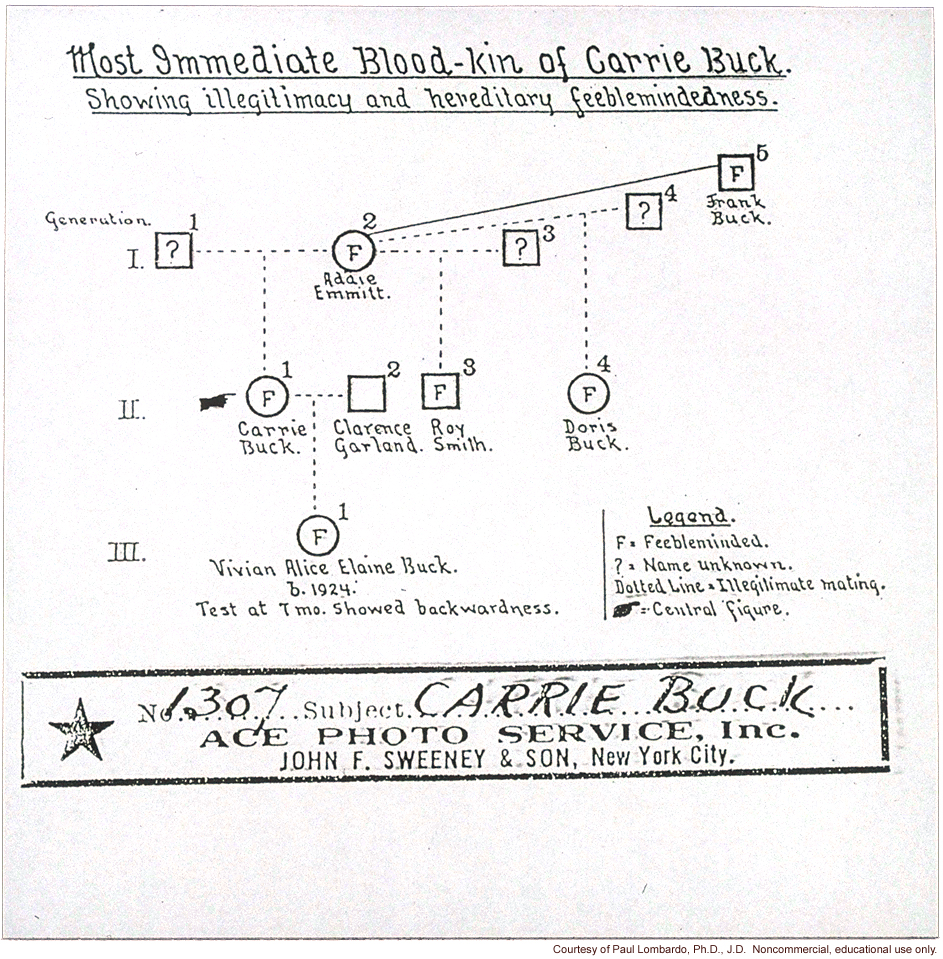 Most Immediate Blood-kin of Carrie Buck.
Showing illegitimacy and hereditary feeblemindedness.
5
F
Frank
Buck.
4
?
Generation.
1
2
3
I.
?
F
?
Addie
Emmitt.
1
2
3
4
II.
F
F
F
Carrie
Buck.
Clarence
Garland.
Roy
Smith.
Doris
Buck.
1
III.
F
Vivian Alice Elaine Buck.
b. 1924.
Test at 7 mo. Showed backwardness.
Legend.
F = Feebleminded.
? = Name unknown.
Dotted Line = Illegitimate mating.
= Central figure.
No. 1307 Subject. CARRIE BUCK
ACE PHOTO SERVICE, Inc.
JOHN F. SWEENEY & SON, New York City.
Courtesy of Paul Lombardo, Ph.D., J.D. Noncommercial, educational use only.